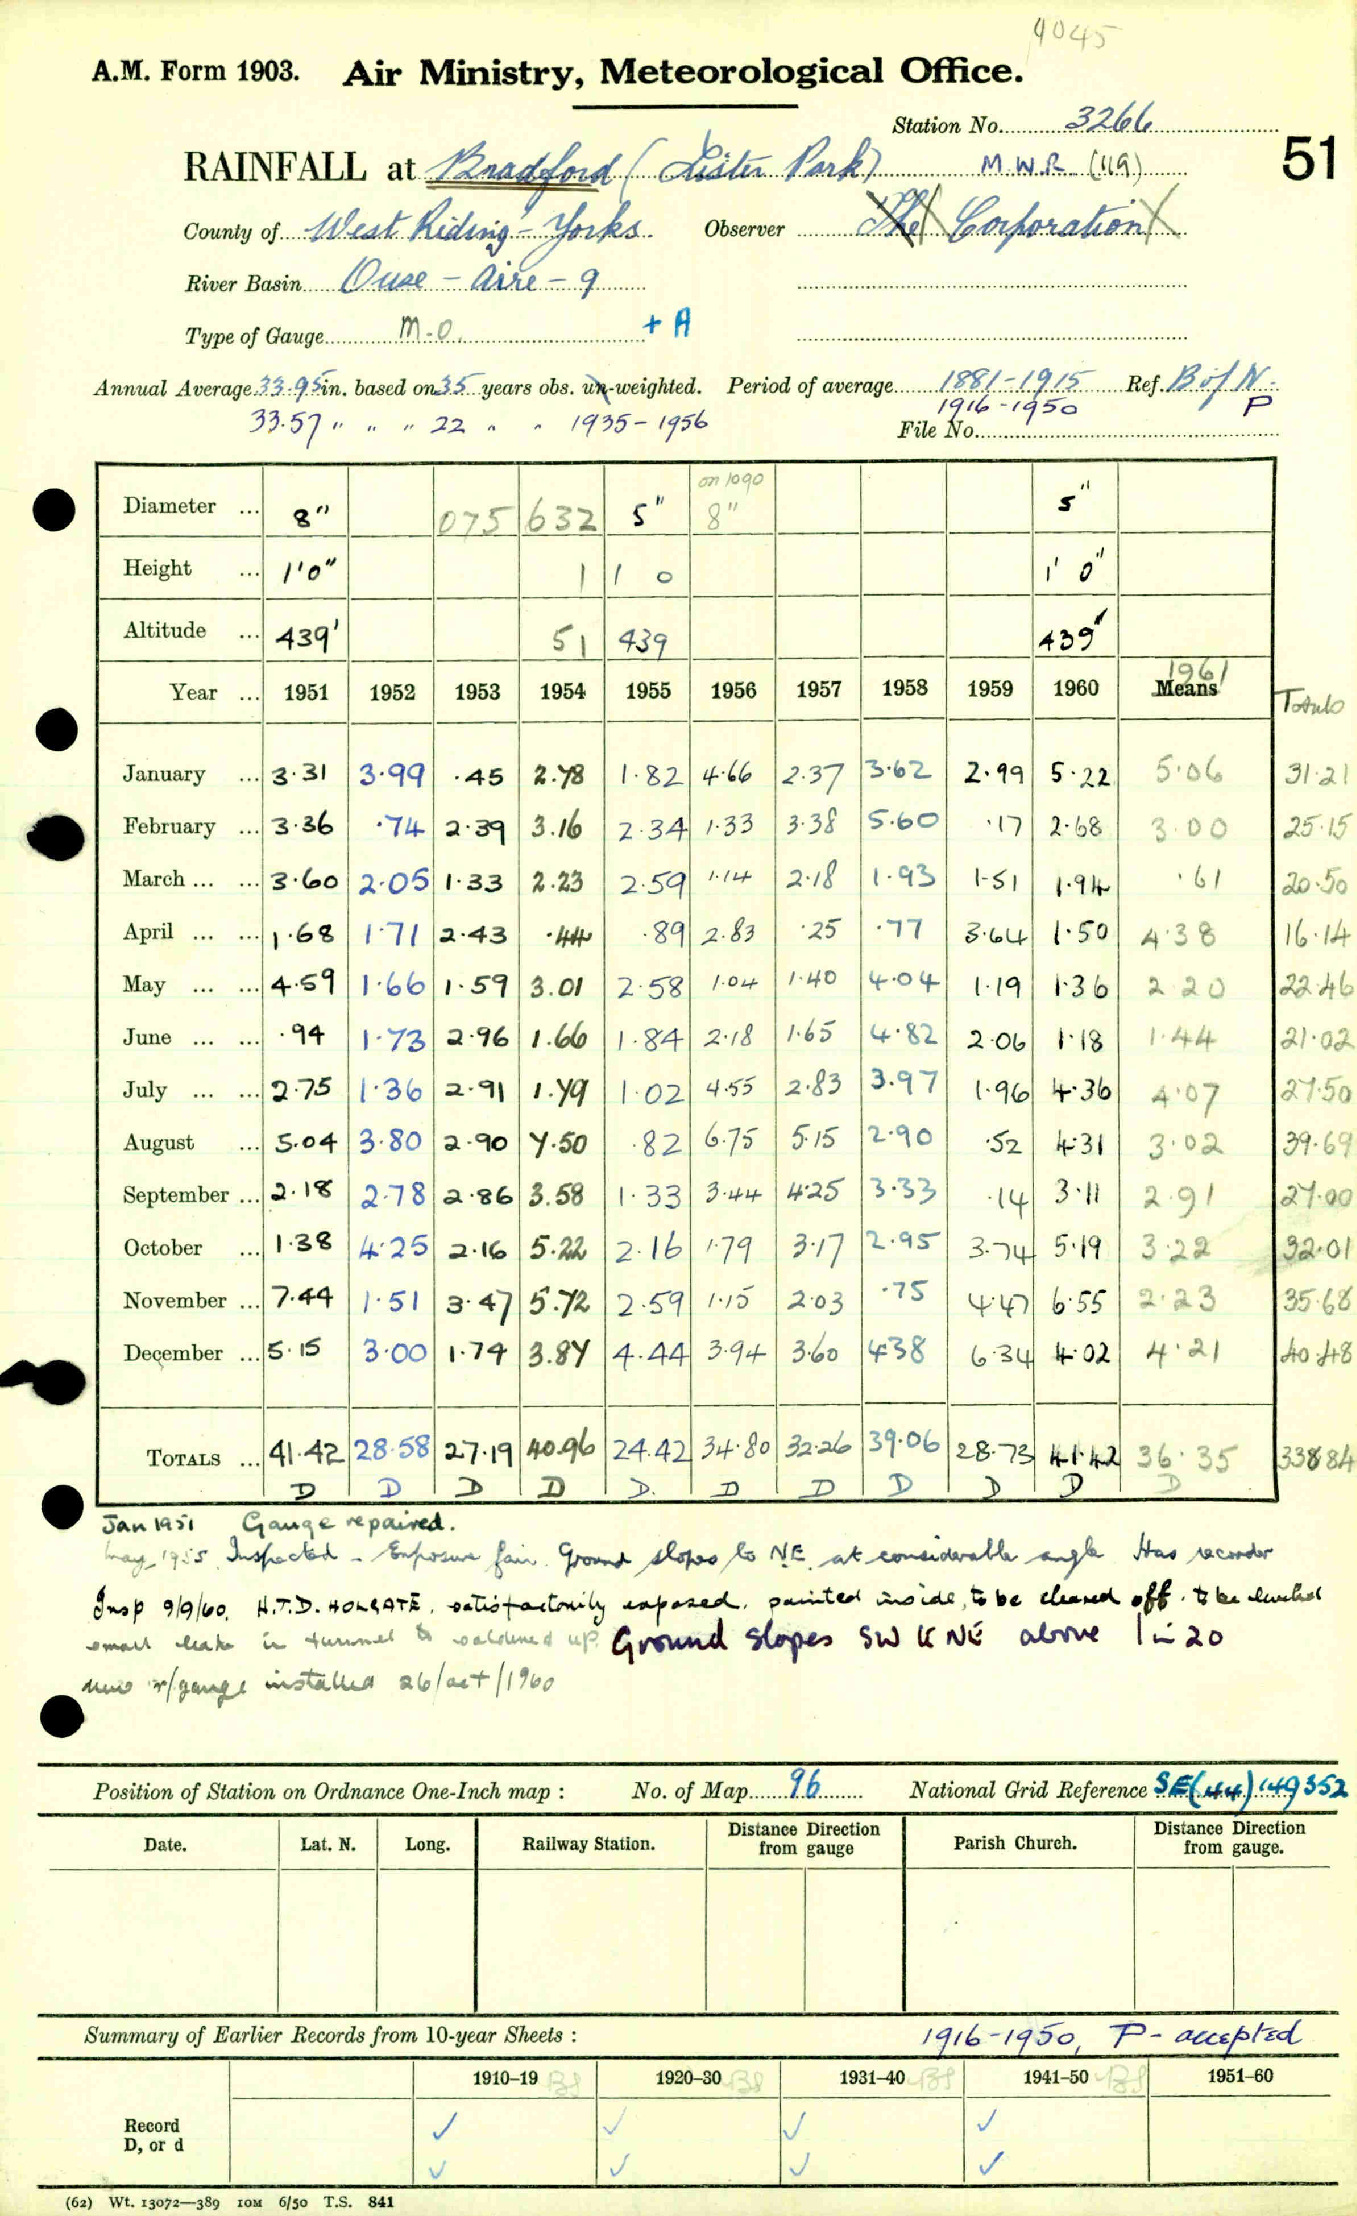 4045
A.M. Form 1903. Air Ministry, Meteorological Office.
Station No. 3266
51
RAINFALL at Bradford (Lister Park) M.W.R. (119)
County of West Riding - Yorks Observer The Corporation
River Basin Ouse - Aire - 9
Type of Gauge M.O. + A
Annual Average 33.95 in. based on 35 years obs. un-weighted. Period of average 1881-1915 Ref. B of N.
33.57 " " " 22 " " 1935-1956 1916-1950 P
File No.
Diameter ... 8" 075 632 5" on 1090 8" 5"
Height ... 1'0" 1 1 0 1' 0"
Altitude ... 439' 51 439 439'
Year ... 1951 1952 1953 1954 1955 1956 1957 1958 1959 1960 Means 1961 Totals
January ... 3.31 3.99 .45 2.78 1.82 4.66 2.37 3.62 2.99 5.22 5.06 31.21
February ... 3.36 .74 2.39 3.16 2.34 1.33 3.38 5.60 .17 2.68 3.00 25.15
March ... ... 3.60 2.05 1.33 2.23 2.59 1.14 2.18 1.93 1.51 1.94 .61 20.50
April ... ... 1.68 1.71 2.43 .44 .89 2.83 .25 .77 3.64 1.50 4.38 16.14
May ... ... 4.59 1.66 1.59 3.01 2.58 1.04 1.40 4.04 1.19 1.36 2.20 22.46
June ... ... .94 1.73 2.96 1.66 1.84 2.18 1.65 4.82 2.06 1.18 1.44 21.02
July ... ... 2.75 1.36 2.91 1.79 1.02 4.55 2.83 3.97 1.96 4.36 4.07 27.50
August ... 5.04 3.80 2.90 7.50 .82 6.75 5.15 2.90 .52 4.31 3.02 39.69
September ... 2.18 2.78 2.86 3.58 1.33 3.44 4.25 3.33 .14 3.11 2.91 27.00
October ... 1.38 4.25 2.16 5.22 2.16 1.79 3.17 2.95 3.74 5.19 3.22 32.01
November ... 7.44 1.51 3.47 5.72 2.59 1.15 2.03 .75 4.47 6.55 2.23 35.68
December ... 5.15 3.00 1.74 3.87 4.44 3.94 3.60 4.38 6.34 4.02 4.21 40.48
TOTALS ... 41.42 28.58 27.19 40.96 24.42 34.80 32.26 39.06 28.73 41.42 36.35 338.84
D D D D D. D D D D D D
Jan 1951 Gauge repaired.
May 1955 Inspected - Exposure fair. Ground slopes to NE at considerable angle Has recorder
Insp 9/9/60. H.T.D. HOLGATE. satisfactorily exposed. painted inside, to be cleaned off. to be levelled
small leak in funnel to soldered up. Ground slopes SW to NE above 1 in 20
new r/gauge installed 26/oct/1960
Position of Station on Ordnance One-Inch map : No. of Map 96 National Grid Reference SE(44) 149352
Date. Lat. N. Long. Railway Station. Distance Direction from gauge Parish Church. Distance Direction from gauge.
Summary of Earlier Records from 10-year Sheets : 1916-1950, P - accepted
1910-19 BS 1920-30 BS 1931-40 BS 1941-50 BS 1951-60
Record ✓ ✓ ✓ ✓
D, or d ✓ ✓ ✓ ✓
(62) Wt. 13072—389 10M 6/50 T.S. 841